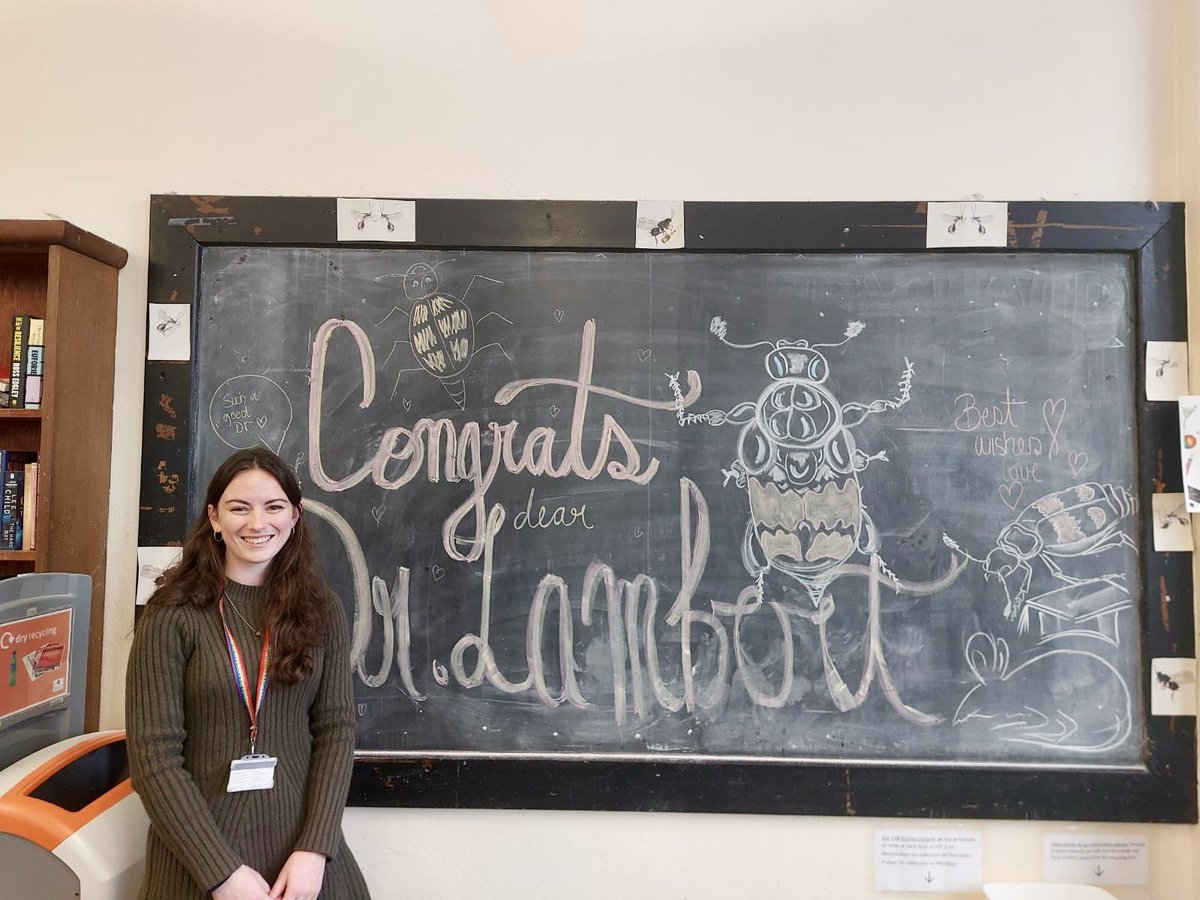 Such a
good
Dr ♡
Congrats
dear
Dr. Lambert
Best
wishes
love
RESILIENCE
LEE
CHILD
dry recycling